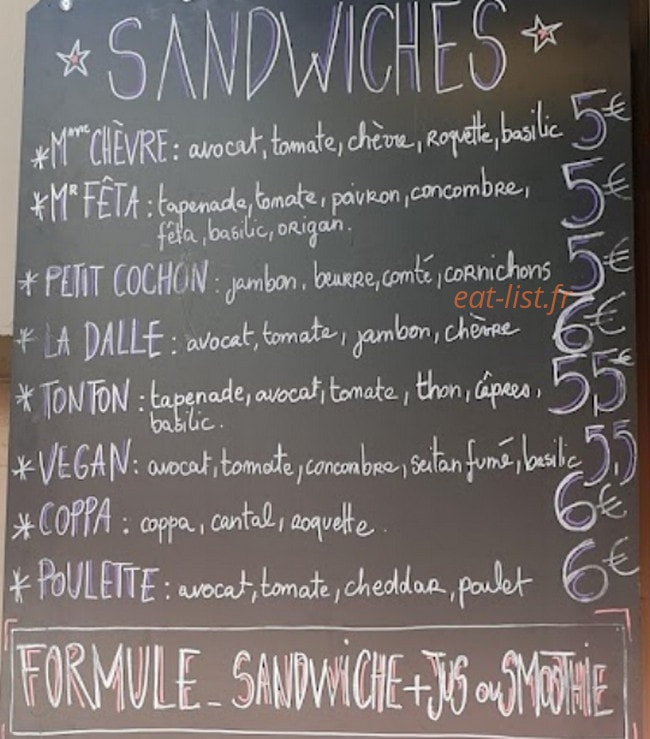 SANDWICHES
*Mme CHÈVRE : avocat, tomate, chèvre, roquette, basilic 5€
*Mr FÊTA : tapenade, tomate, poivron, concombre, 5€
fêta, basilic, origan.
* PETIT COCHON : jambon, beurre, comté, cornichons 5€
eat-list.fr
* LA DALLE : avocat, tomate, jambon, chèvre 6€
* TONTON : tapenade, avocat, tomate, thon, câpres, 5,5€
basilic.
* VEGAN : avocat, tomate, concombre, seitan fumé, basilic 5,5
* COPPA : coppa, cantal, roquette. 6€
* POULETTE : avocat, tomate, cheddar, poulet 6€
FORMULE - SANDWICHE + JUS ou SMOOTHIE